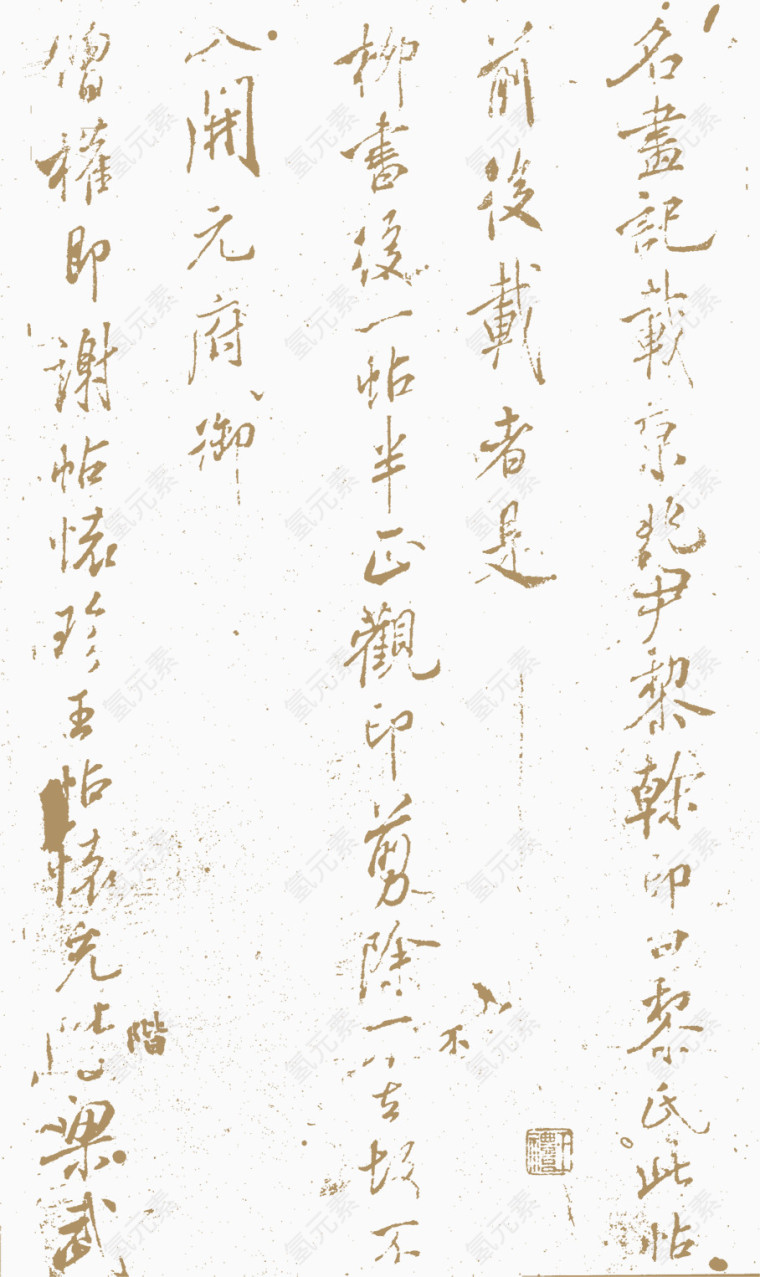 名畫記載京兆尹黎幹印曰黎氏此帖
前後載者是
柳書後一帖半正觀印剪除不去故不
不
入開元府御
僧權即謝帖懷珍王帖懷充此梁武
階
氢元素